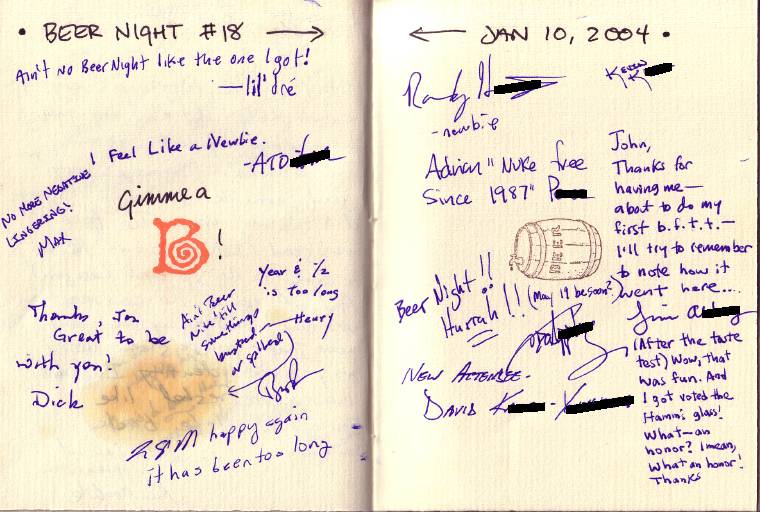 • BEER NIGHT #18 →
Ain't no Beer Night like the one I got!
—lil' dré
I Feel Like a Newbie.
-ATD
NO MORE NEGATIVE
LINGERING!
MAX
Gimme a
B!
Year & 1/2
is too long
— Henry
Ain't Beer
Nite 'till
somethings
busted
or spilled!
Thanks, Jon
Great to be
with you!
Dick
happy again
it has been too long
← JAN 10, 2004 •
Randy H
- newbie
Kevin
K
Adrian "Nuke free
Since 1987" P
BEER
Beer Night!!
Hurrah!! (May 1st be soon?)
NEW ATTENDEE-
DAVID K - K
John,
Thanks for
having me—
about to do my
first b.f.t.t.—
I'll try to remember
to note how it
went here...
Jim A
(After the taste
test) Wow, that
was fun. And
I got voted the
Hamm's glass!
What—an
honor? I mean,
What an honor!
Thanks